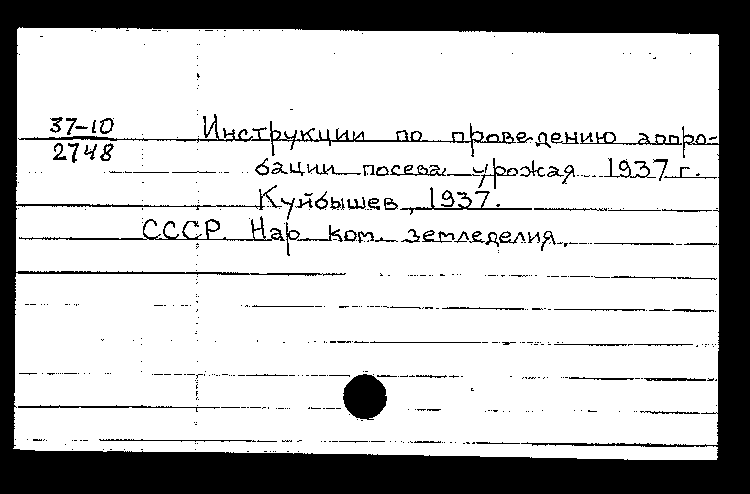 37-10
2748
Инструкции по проведению апро-
бации посева урожая 1937 г.
Куйбышев, 1937.
СССР. Нар. ком. земледелия.